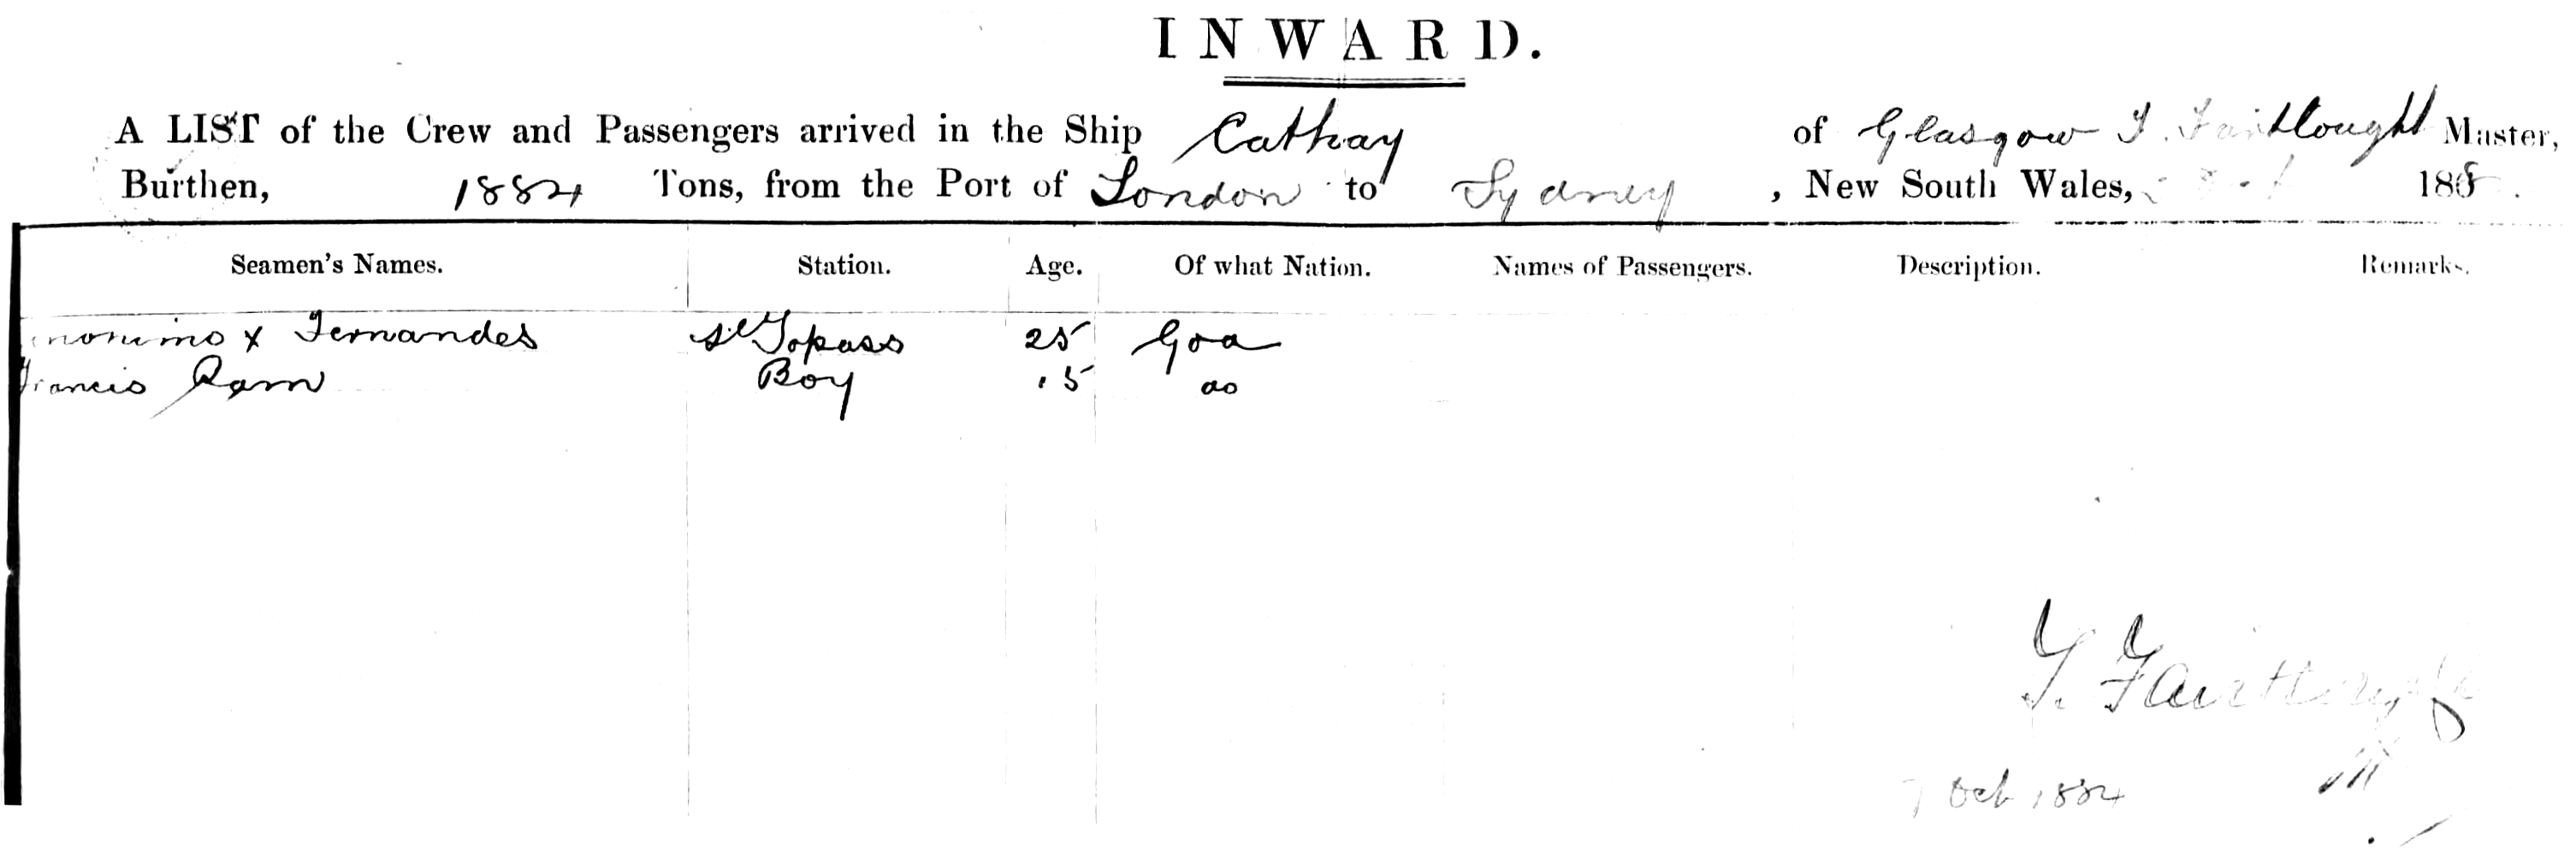 INWARD.
A LIST of the Crew and Passengers arrived in the Ship Cathay of Glasgow Master,
Burthen, 1884 Tons, from the Port of London to Sydney, New South Wales, 188
Seamen's Names. Station. Age. Of what Nation. Names of Passengers. Description. Remarks.
x Fernandes Topass 25 Goa
Francis Boy 15 do
7 Oct 1884